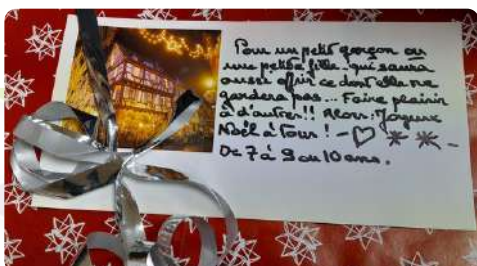 Pour un petit garçon ou
une petite fille qui saura
aussi offrir ce dont elle ne
gardera pas... Faire plaisir
à d'autres!! Alors: Joyeux
Noël à tous! - ♡ * * -
De 7 à 9 ou 10 ans.